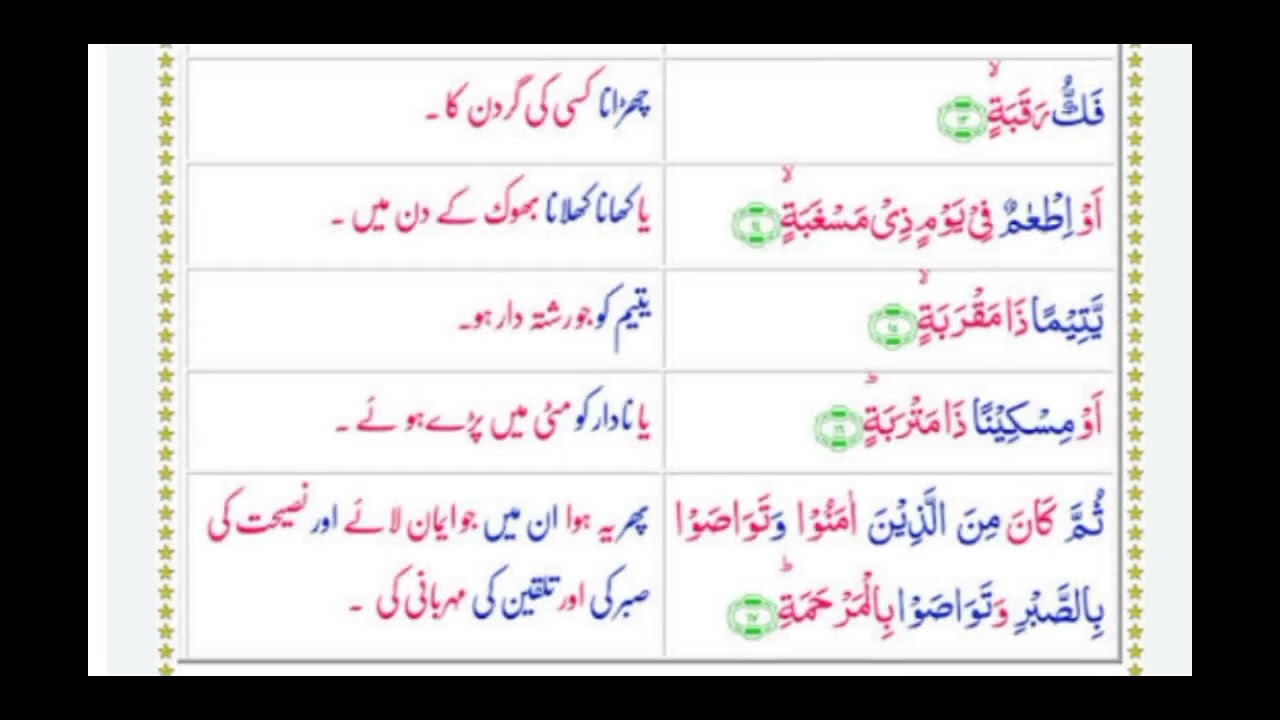 فَكُّ رَقَبَةٍ ۙ ﴿۱۳﴾
چھڑانا کسی کی گردن کا۔
اَوْ اِطْعٰمٌ فِیْ یَوْمٍ ذِیْ مَسْغَبَةٍ ۙ ﴿۱۴﴾
یا کھانا کھلانا بھوک کے دن میں۔
یَّتِیْمًا ذَا مَقْرَبَةٍ ۙ ﴿۱۵﴾
یتیم کو جو رشتہ دار ہو۔
اَوْ مِسْكِیْنًا ذَا مَتْرَبَةٍ ؕ ﴿۱۶﴾
یا نادار کو مٹی میں پڑے ہوئے۔
ثُمَّ كَانَ مِنَ الَّذِیْنَ اٰمَنُوْا وَتَوَاصَوْا
بِالصَّبْرِ وَتَوَاصَوْا بِالْمَرْحَمَةِ ؕ ﴿۱۷﴾
پھر یہ ہوا ان میں جو ایمان لائے اور نصیحت کی
صبر کی اور تلقین کی مہربانی کی۔